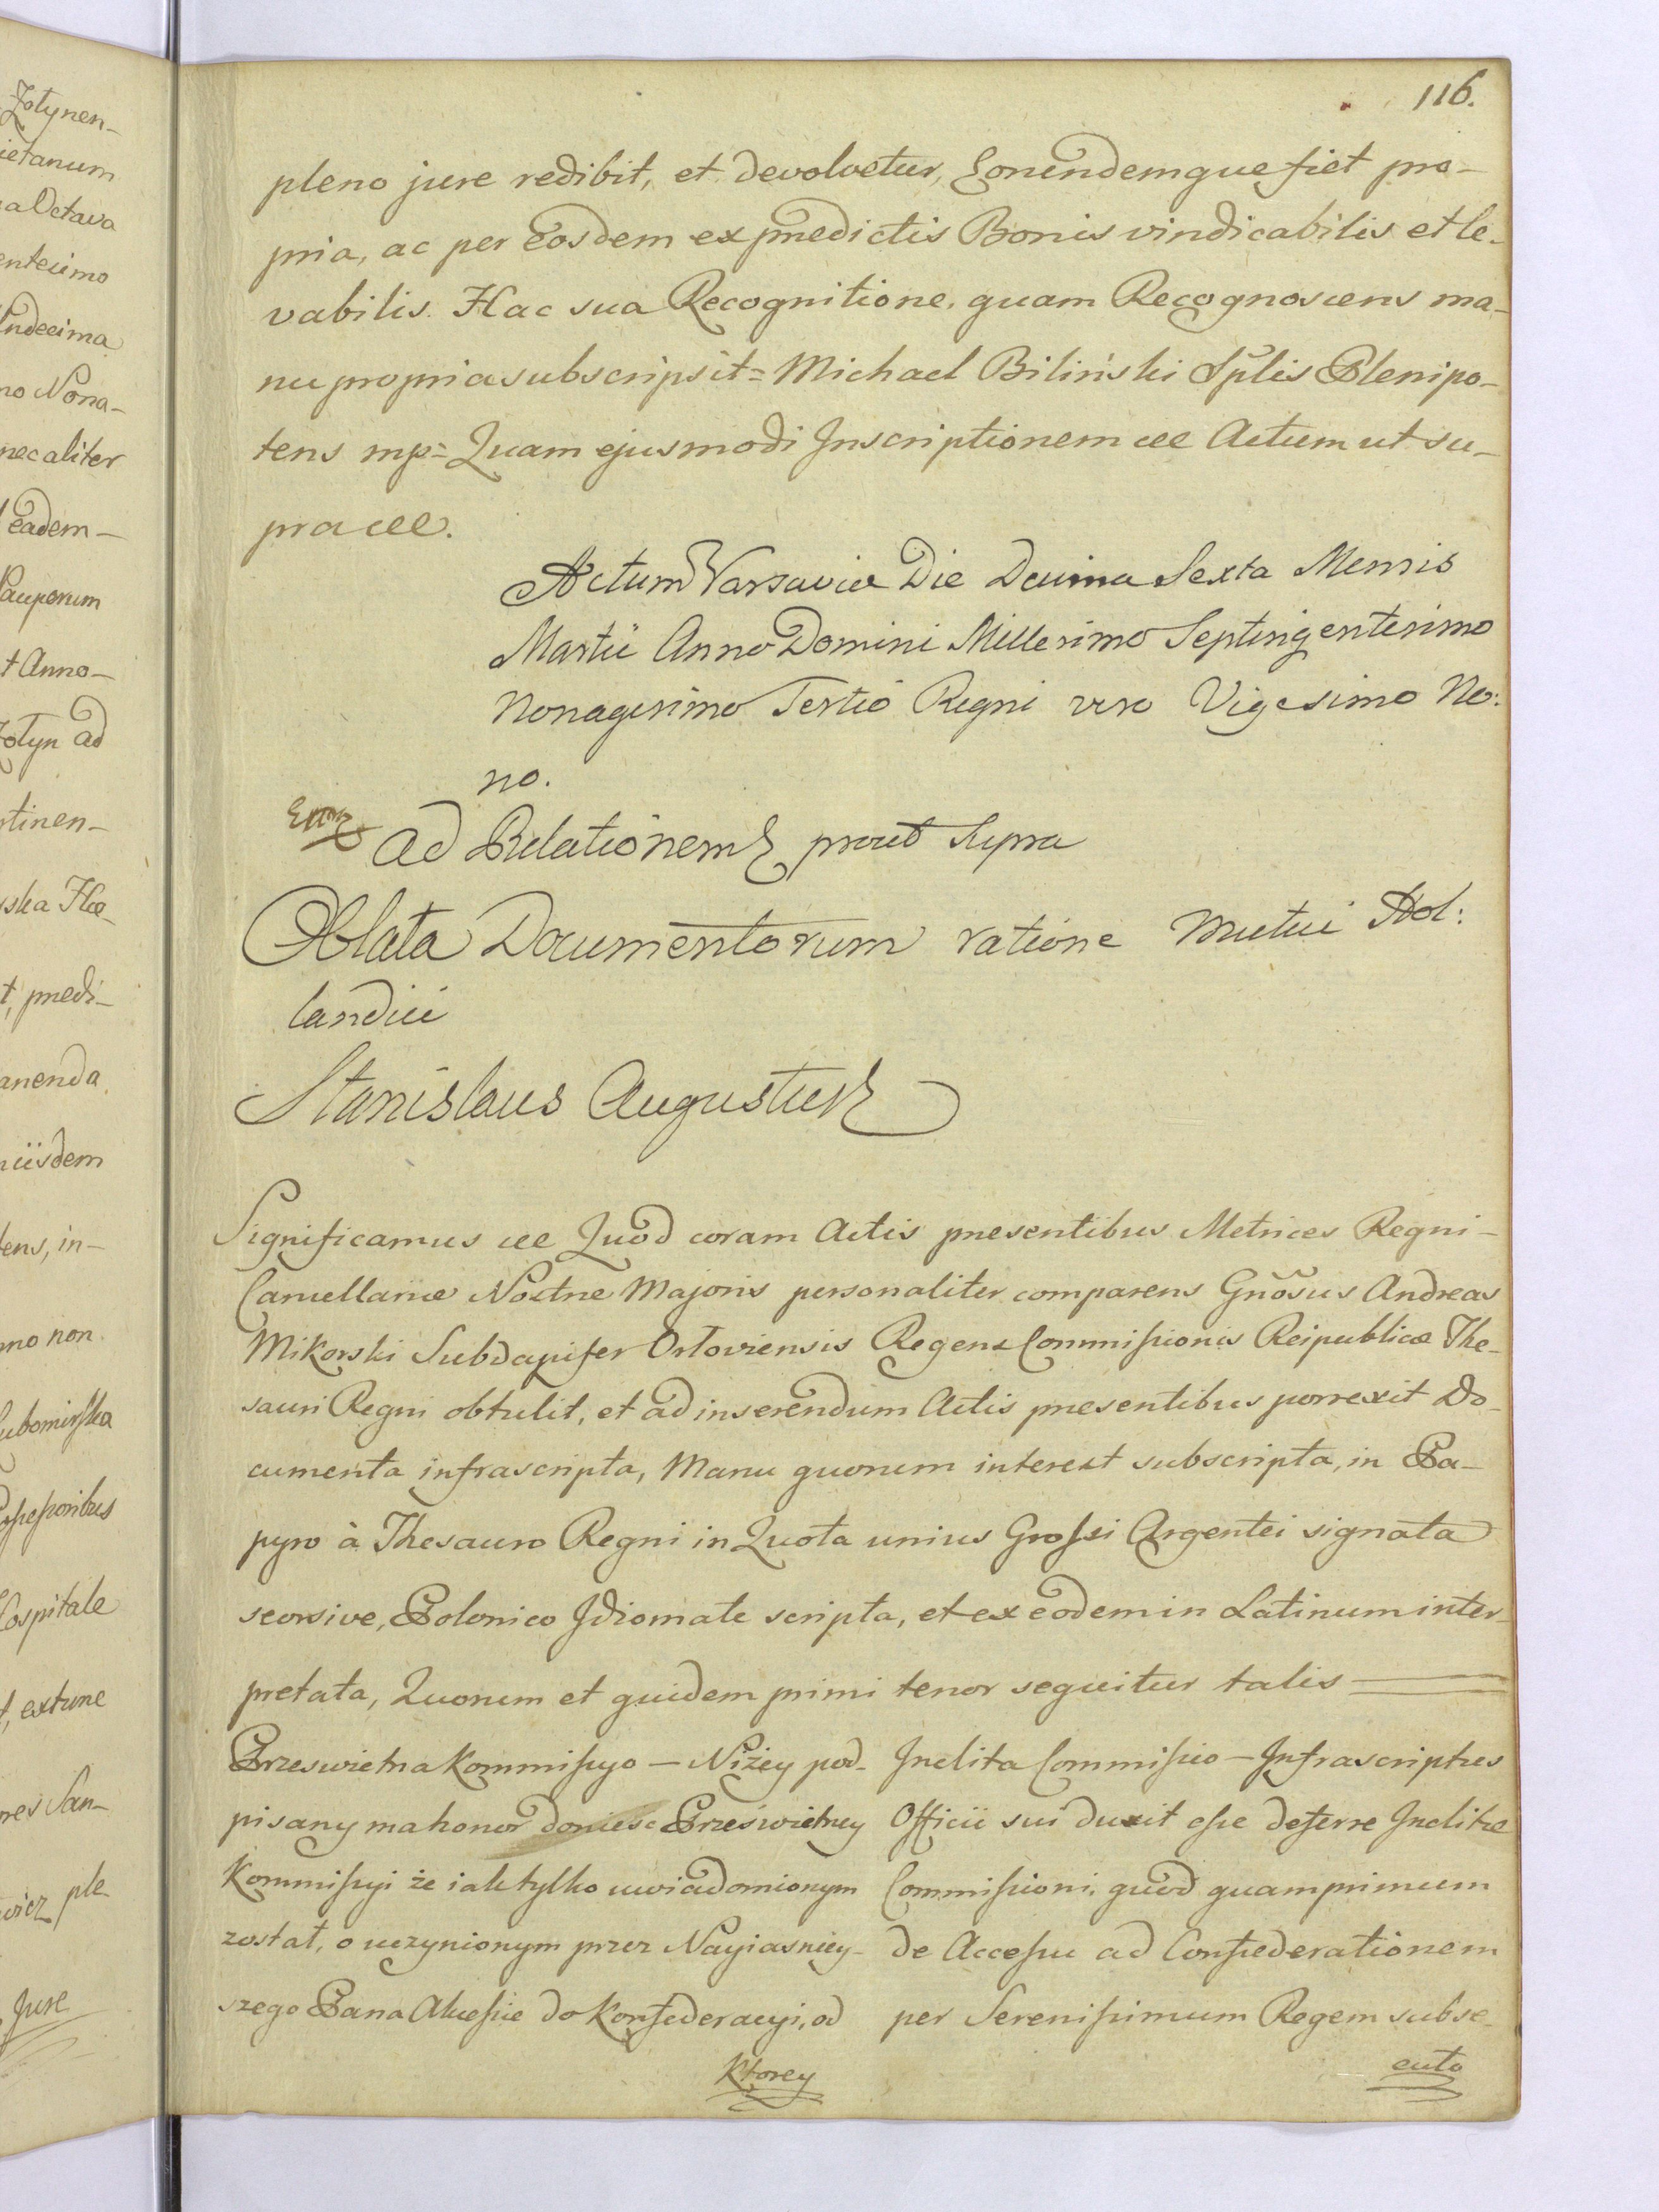 116.
pleno jure redibit, et devolvetur, Eorundemque fiet pro-
pria, ac per Eosdem ex prædictis Bonis vindicabilis et le-
vabilis. Hac sua Recognitione, quam Recognoscens ma-
nu propria subscripsit = Michael Biliński Splis Plenipo-
tens mp = Quam ejusmodi Inscriptionem etc Actum ut su-
pra etc.
Actum Varsaviæ Die Decima Sexta Mensis
Martii Anno Domini Millesimo Septingentesimo
Nonagesimo Tertio Regni vero Vigesimo No:
no.
Ad Relationem prout Supra
Oblata Documentorum ratione Mutui Hol:
landici
Stanislaus Augustus
Significamus etc Quod coram Actis præsentibus Metrices Regni-
Cancellariæ Nostræ Majoris personaliter comparens Gnosus Andreas
Mikorski Subdapifer Orłoviensis Regens Commissionis Reipublicæ The-
sauri Regni obtulit, et ad inserendum Actis præsentibus porrexit Do-
cumenta infrascripta, Manu quorum interest subscripta, in Pa-
pyro à Thesauro Regni in Quota unius Grossi Argentei signata
seorsive, Polonico Idiomate scripta, et ex eodem in Latinum inter-
pretata, Quorum et quidem primi tenor sequitur talis
Przeswietna Kommissyo — Niżey pod-
pisany ma honor donieść Prześwietney
Kommissyi że iak tylko uwiadomionym
został, o uczynionym przez Nayiasniey-
szego Pana Akcessie do Konfederacyi, od
ktorey
Inclita Commissio — Infrascriptus
Officii sui duxit esse deferre Inclitæ
Commissioni, quod quamprimum
de Accessu ad Confœderationem
per Serenissimum Regem subse-
cuto
Żołynen-
ietanum
na Octava
entesimo
Undecima
no Nona-
nec aliter
eadem-
Pauperum
t Anno-
Żołyn ad
rtinen-
ska Hæ-
t, prædi-
anenda
iisdem
tens, in-
mo non
Lubomirska
Possessoribus
Hospitale
t, extunc
res San-
wicz ple-
Jure